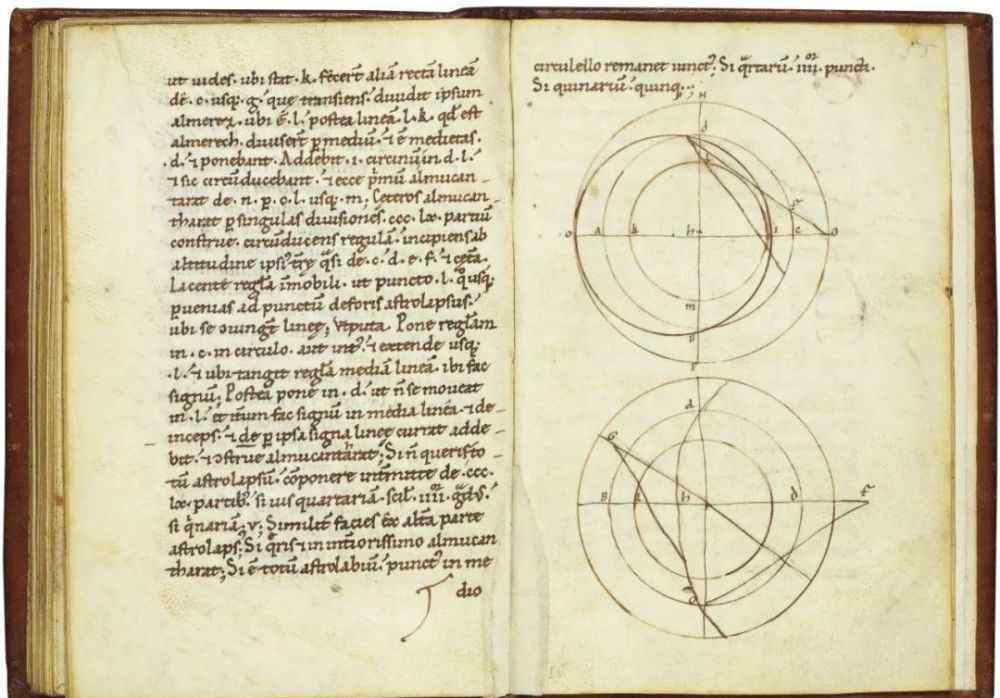 ut uides. ubi stat. k. fecert̄ aliā rectā lineā
de. c. usq;. g. que transiens. diuidit ipsum
almerez. ubi ē. l. postea lineā. l. k. qd̄ est
almerech. diuisert̄ p mediū. ⁊ ē medietas.
.d. ⁊ ponebant. Addebit. i. circinū in. d. l.
⁊ sic circūducebant. ⁊ ecce pͥmū almucan-
tarat de. n. p. o. l. usq;. m; Ceteros almucan-
tharat p singulas diuisiones. ccc. lx. partiū
construe. circūducens regulā. incipiens ab
altitudine ipsi de. c. d. e. f. ⁊ ceta.
Iacente regl̄a īmobili. ut puncto. l. usq;
puenias ad punctū deforis astrolapsus.
ubi se ɔiungt̄ linee; Vtputa. Pone regl̄am
in. c. in circulo. aut int. ⁊ extende usq;
.l. ⁊ ubi tangit regl̄a mediā lineā. ibi fac
signū; Postea pone in. d. ut n̄ se moueat
in. l. et itm̄ fac signū in media linea. ⁊ de-
inceps. ⁊ de p ipsa signa linee currat adde-
bit. ⁊ ɔstrue almucantarat; Si n̄ queris to-
tū astrolapsū. cōponere de. ccc.
lx. partib;. si uis quartariā. scil. iiii. gͣdꝰ.
si qͥnariā. v; Similit̄ facies ex alt̄a parte
astrolapsi; Si qͥris ⁊ in intͥorissimo almucan
tharat; Si ē totū astrolabiū. punctꝰ in me
dio
circulello remanet iunctꝰ; Si qͣrtariū. iiii. puncti.
Si quinariū. quinq;.
H
d
o A k h i c O
m
B
F
a
G
B h d F
C